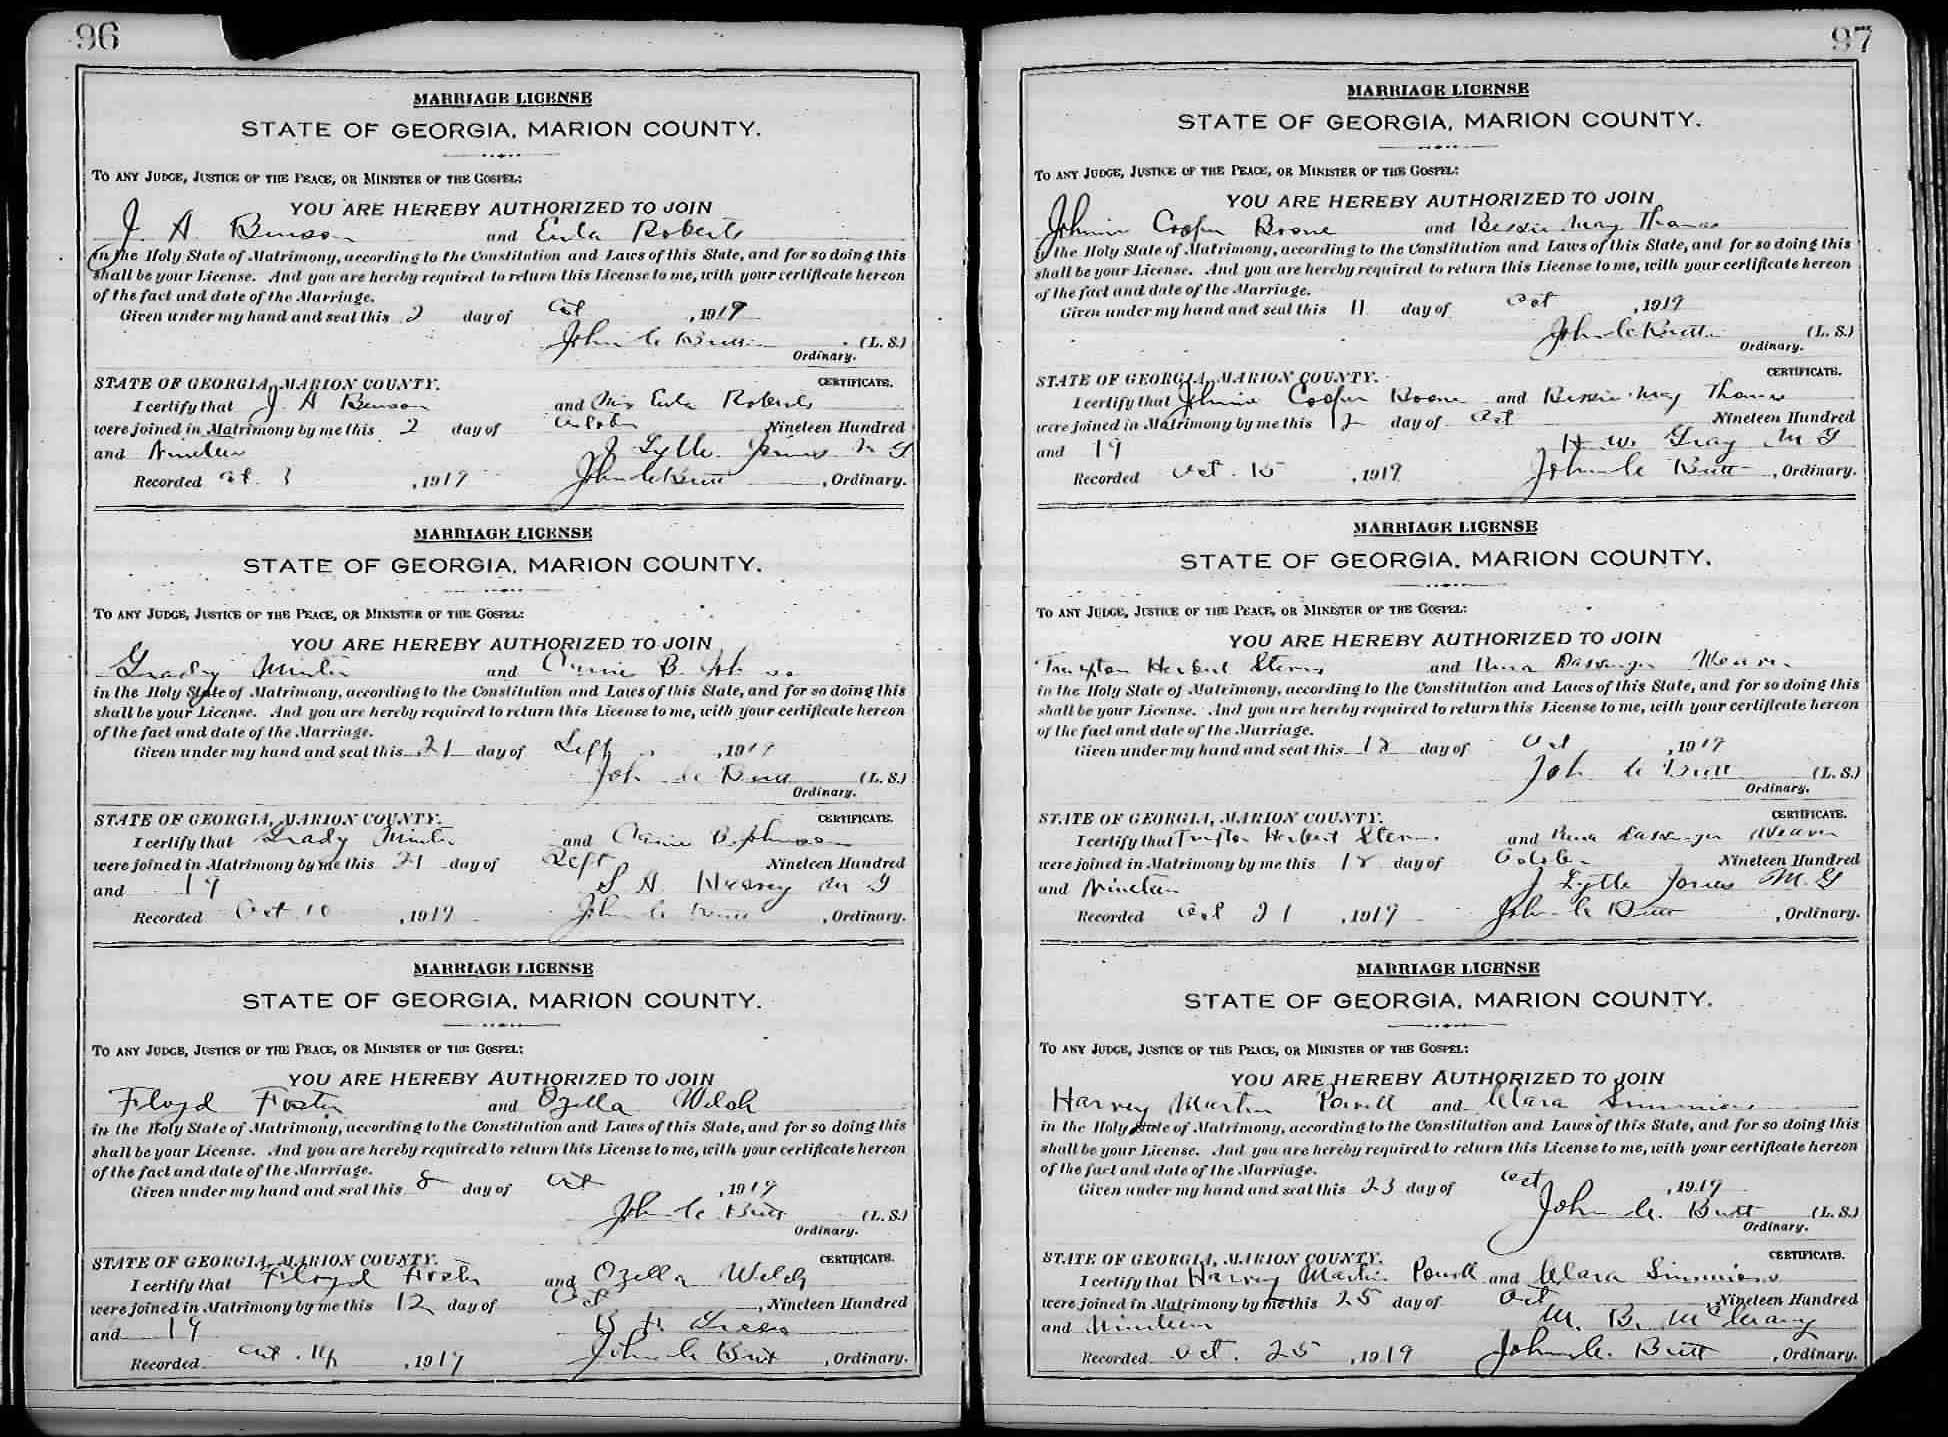 96
MARRIAGE LICENSE
STATE OF GEORGIA, MARION COUNTY.
TO ANY JUDGE, JUSTICE OF THE PEACE, OR MINISTER OF THE GOSPEL:
YOU ARE HEREBY AUTHORIZED TO JOIN
J. A Benson and Eula Roberts
in the Holy State of Matrimony, according to the Constitution and Laws of this State, and for so doing this
shall be your License. And you are hereby required to return this License to me, with your certificate hereon
of the fact and date of the Marriage.
Given under my hand and seal this 2 day of Oct, 1919
John C Butt (L. S.)
Ordinary.
STATE OF GEORGIA, MARION COUNTY. CERTIFICATE.
I certify that J. A Benson and Miss Eula Roberts
were joined in Matrimony by me this 2 day of October Nineteen Hundred
and Nineteen J Lytle Jones M G
Recorded Oct. 3, 1919 John C Butt, Ordinary.
MARRIAGE LICENSE
STATE OF GEORGIA, MARION COUNTY.
TO ANY JUDGE, JUSTICE OF THE PEACE, OR MINISTER OF THE GOSPEL:
YOU ARE HEREBY AUTHORIZED TO JOIN
Grady Minter and Carrie B. Johnson
in the Holy State of Matrimony, according to the Constitution and Laws of this State, and for so doing this
shall be your License. And you are hereby required to return this License to me, with your certificate hereon
of the fact and date of the Marriage.
Given under my hand and seal this 21 day of Sept, 1919
John C Butt (L. S.)
Ordinary.
STATE OF GEORGIA, MARION COUNTY. CERTIFICATE.
I certify that Grady Minter and Carrie B. Johnson
were joined in Matrimony by me this 21 day of Sept Nineteen Hundred
and 19 S A Harvey M G
Recorded Oct 10, 1919 John C Butt, Ordinary.
MARRIAGE LICENSE
STATE OF GEORGIA, MARION COUNTY.
TO ANY JUDGE, JUSTICE OF THE PEACE, OR MINISTER OF THE GOSPEL:
YOU ARE HEREBY AUTHORIZED TO JOIN
Floyd Foster and Ozella Welch
in the Holy State of Matrimony, according to the Constitution and Laws of this State, and for so doing this
shall be your License. And you are hereby required to return this License to me, with your certificate hereon
of the fact and date of the Marriage.
Given under my hand and seal this 8 day of Oct, 1919
John C Butt (L. S.)
Ordinary.
STATE OF GEORGIA, MARION COUNTY. CERTIFICATE.
I certify that Floyd Foster and Ozella Welch
were joined in Matrimony by me this 12 day of Oct, Nineteen Hundred
and 19 B H
Recorded Oct. 14, 1919 John C Butt, Ordinary.
97
MARRIAGE LICENSE
STATE OF GEORGIA, MARION COUNTY.
TO ANY JUDGE, JUSTICE OF THE PEACE, OR MINISTER OF THE GOSPEL:
YOU ARE HEREBY AUTHORIZED TO JOIN
Johnie Cooper Boone and Bessie May Thomas
in the Holy State of Matrimony, according to the Constitution and Laws of this State, and for so doing this
shall be your License. And you are hereby required to return this License to me, with your certificate hereon
of the fact and date of the Marriage.
Given under my hand and seal this 11 day of Oct, 1919
John C Butt (L. S.)
Ordinary.
STATE OF GEORGIA, MARION COUNTY. CERTIFICATE.
I certify that Johnie Cooper Boone and Bessie May Thomas
were joined in Matrimony by me this 12 day of Oct Nineteen Hundred
and 19 H. W. Gray M G
Recorded Oct. 15, 1919 John C Butt, Ordinary.
MARRIAGE LICENSE
STATE OF GEORGIA, MARION COUNTY.
TO ANY JUDGE, JUSTICE OF THE PEACE, OR MINISTER OF THE GOSPEL:
YOU ARE HEREBY AUTHORIZED TO JOIN
Truxton Herbert Sterns and Passenger Weaver
in the Holy State of Matrimony, according to the Constitution and Laws of this State, and for so doing this
shall be your License. And you are hereby required to return this License to me, with your certificate hereon
of the fact and date of the Marriage.
Given under my hand and seal this 18 day of Oct, 1919
John C Butt (L. S.)
Ordinary.
STATE OF GEORGIA, MARION COUNTY. CERTIFICATE.
I certify that Truxton Herbert Sterns and Passenger Weaver
were joined in Matrimony by me this 18 day of October Nineteen Hundred
and Nineteen J Lytle Jones M. G
Recorded Oct 21, 1919 John C Butt, Ordinary.
MARRIAGE LICENSE
STATE OF GEORGIA, MARION COUNTY.
TO ANY JUDGE, JUSTICE OF THE PEACE, OR MINISTER OF THE GOSPEL:
YOU ARE HEREBY AUTHORIZED TO JOIN
Harvey Martin Powell and Clara Simmions
in the Holy State of Matrimony, according to the Constitution and Laws of this State, and for so doing this
shall be your License. And you are hereby required to return this License to me, with your certificate hereon
of the fact and date of the Marriage.
Given under my hand and seal this 23 day of Oct, 1919
John C. Butt (L. S.)
Ordinary.
STATE OF GEORGIA, MARION COUNTY. CERTIFICATE.
I certify that Harvey Martin Powell and Clara Simmions
were joined in Matrimony by me this 25 day of Oct Nineteen Hundred
and Nineteen M. B. McCrary
Recorded Oct. 25, 1919 John C. Butt, Ordinary.